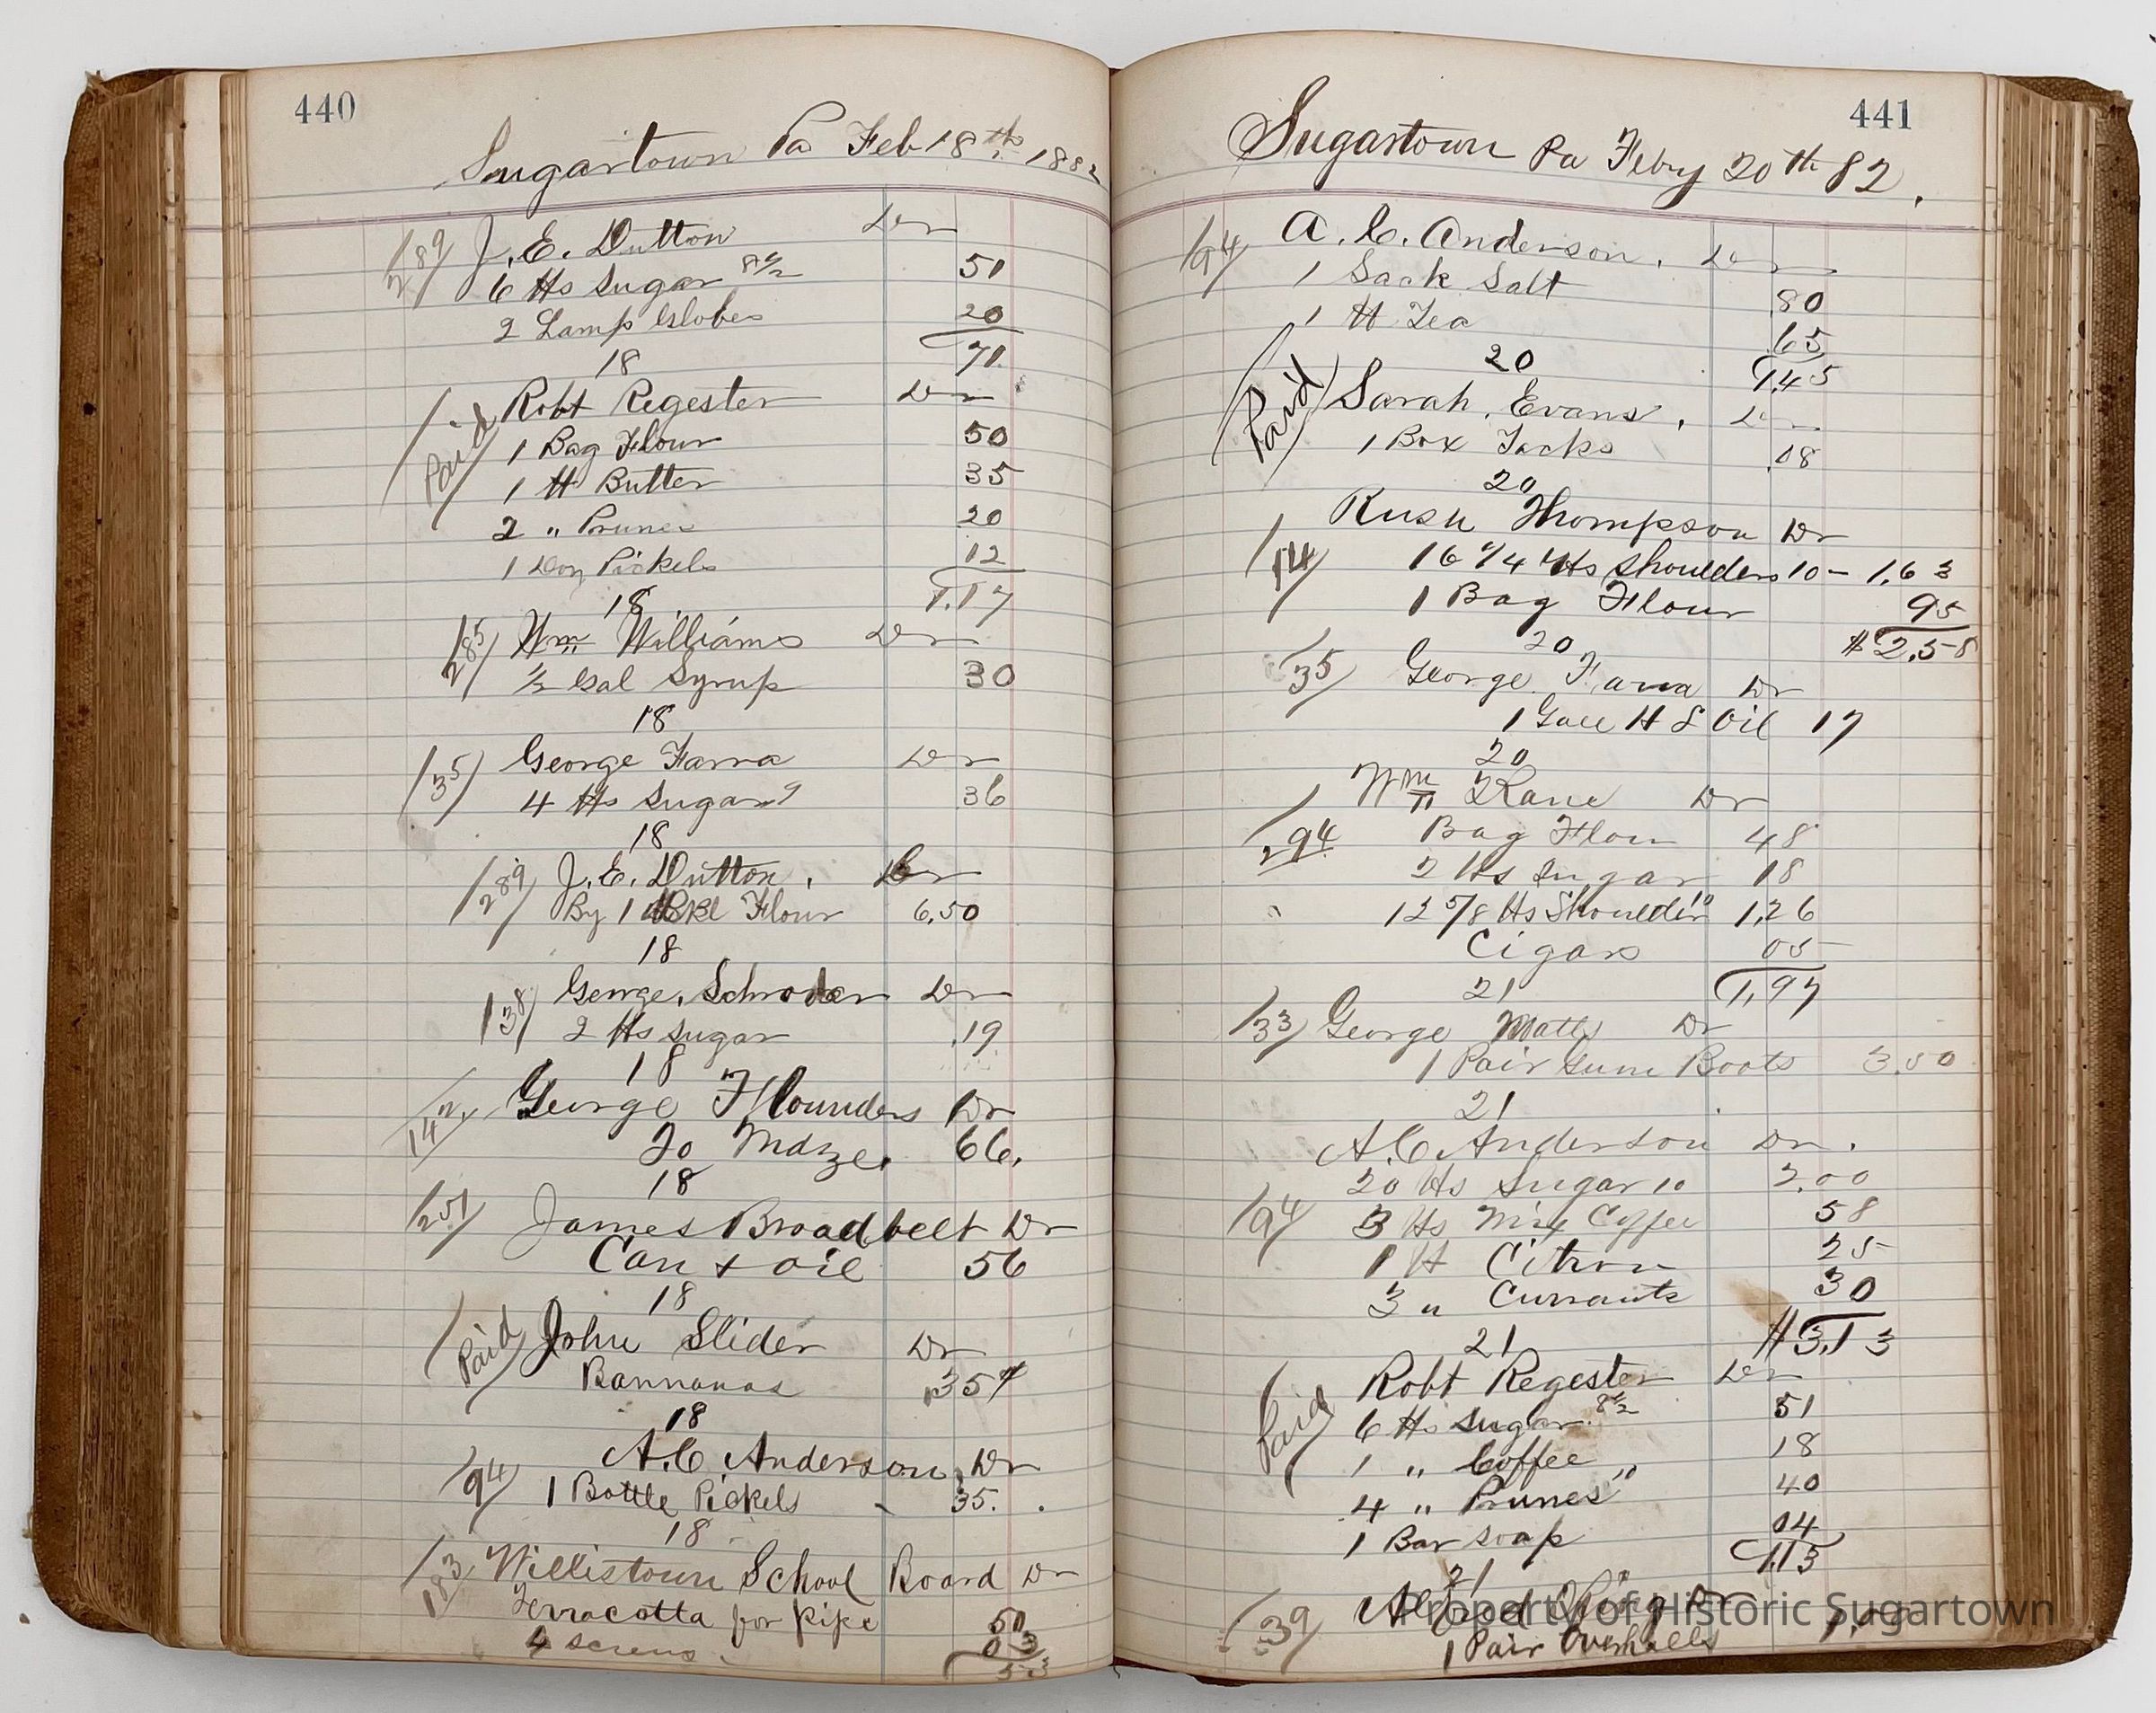 440
Sugartown Pa Feb 18th 1882
289 J. E. Dutton Dr
6 lbs Sugar 8 1/2 51
2 Lamp Globes 20
71
18
Paid Robt Regester Dr
1 Bag Flour 50
1 lb Butter 35
2 " Prunes 20
1 Doz Pickels 12
1.17
18
285 Wm Williams Dr
1/2 Gal Syrup 30
18
35 George Farra Dr
4 lbs Sugar 9 36
18
289 J. E. Dutton, Cr
By 1 Bbl Flour 6.50
18
138 George Schroder Dr
2 lbs Sugar .19
18
George Flounders Dr
To Maze. 66.
18
251 James Broadbelt Dr
Can + oil 56
18
Paid John Slider Dr
Bannanas 35
18
94 A. C Anderson Dr
1 Bottle Pickels - 35.
18
183 Willistown School Board Dr
Terracotta for Pipe 50
4 screws 03
53
441
Sugartown Pa Feby 20th 82.
94 A. C. Anderson. Dr
1 Sack Salt .80
1 lb Tea .65
1.45
20
Paid Sarah. Evans. Dr
1 Box Tacks .08
20
Rush Thompson Dr
14 16 1/4 lbs Shoulders 10 - 1.63
1 Bag Flour 95
$ 2.58
20
35 George Farra Dr
1 Gall H L Oil 17
20
Wm Kane Dr
294 Bag Flour 48
2 lbs Sugar 18
12 5/8 lbs Shoulder 10 1.26
Cigars 05
1.97
21
33 George Matts Dr
1 Pair Gum Boots 3.50
21
A. C Anderson Dr.
20 lbs Sugar 10 2.00
94 3 lbs Mix Coffee 58
1 lb Citron 25
3 " Currants 30
$ 3.13
21
Paid Robt Regester Dr
6 lbs Sugar 8 1/2 51
1 " Coffee 18
4 " Prunes 10 40
1 Bar Soap 04
1.13
21
39 Alfred King Dr
1 Pair Overhalls
Property of Historic Sugartown